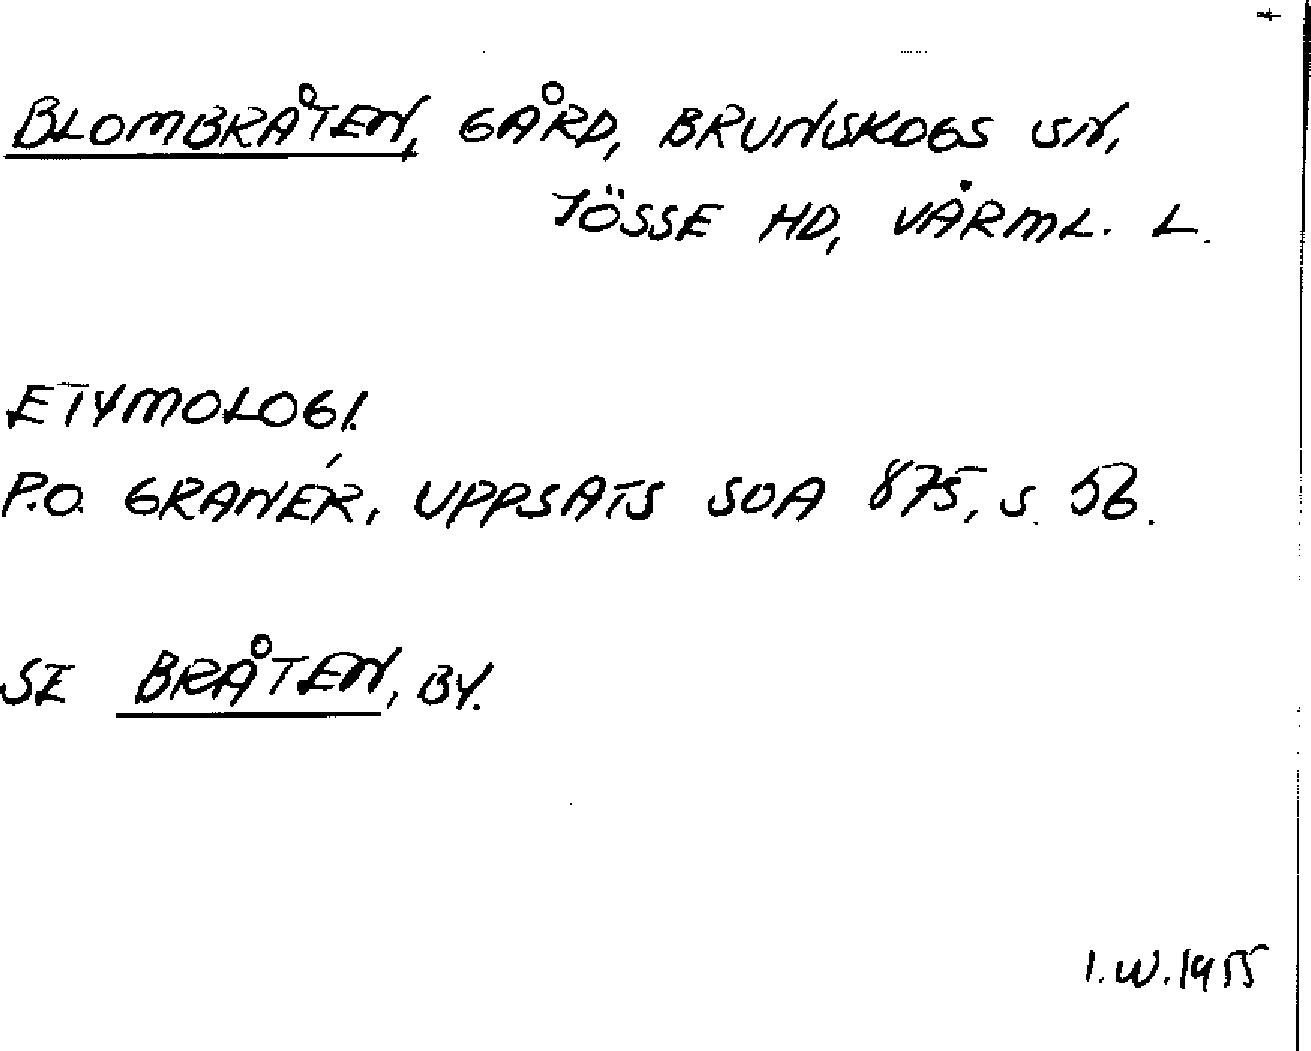 BLOMBRÅTEN, GÅRD, BRUNSKOGS SN,
JÖSSE HD, VÄRML. L.
ETYMOLOGI.
P.O. GRANÉR, UPPSATS SOA 875, S. 56.
SE BRÅTEN, BY.
I.W.1955